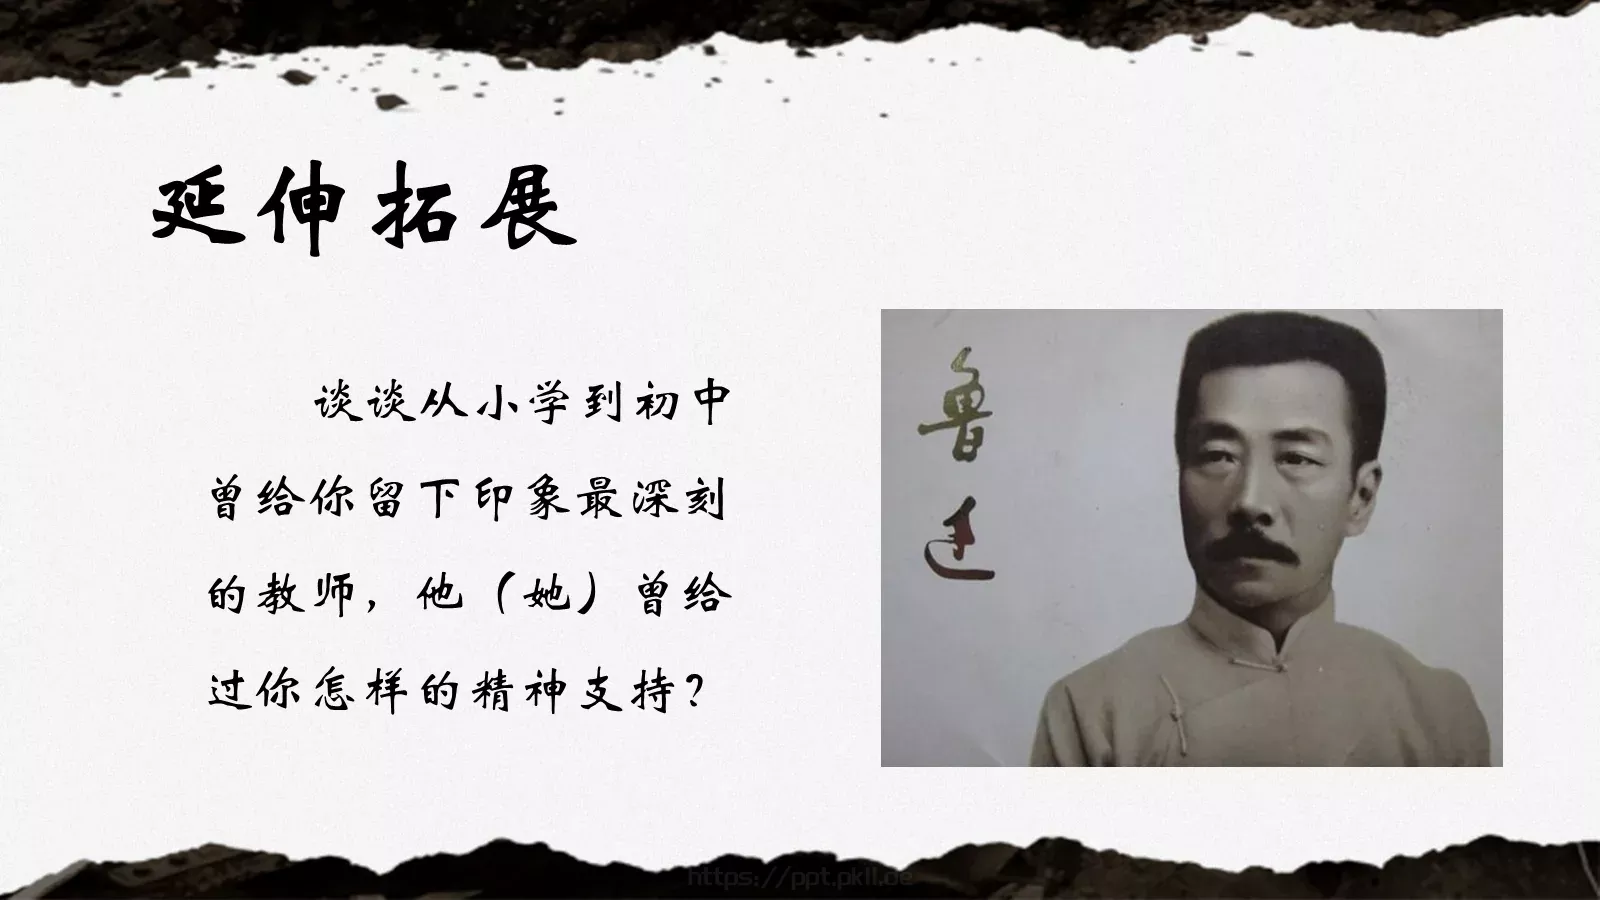 延伸拓展
谈谈从小学到初中
曾给你留下印象最深刻
的教师，他（她）曾给
过你怎样的精神支持？
鲁
迅
https://ppt.pkll.de